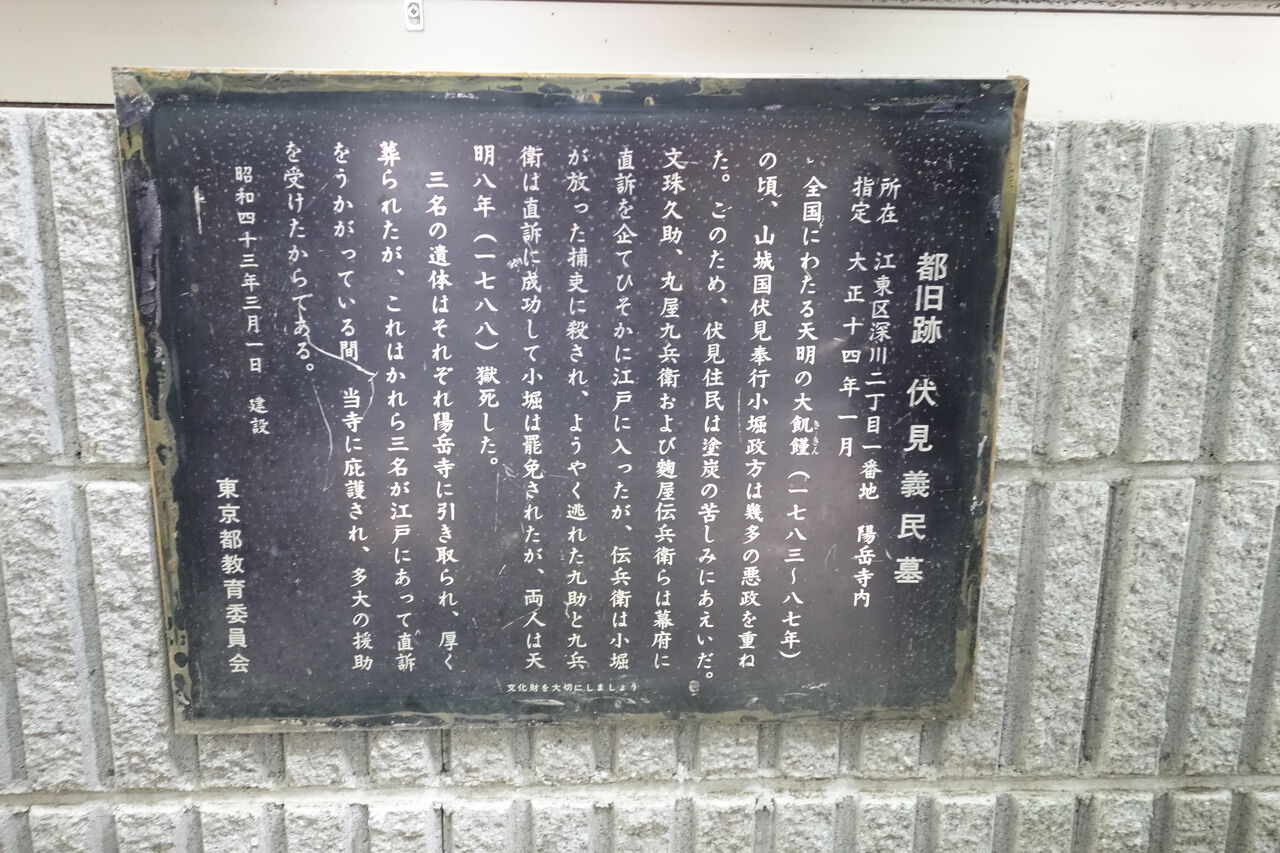 都旧跡 伏見義民墓
所在 江東区深川二丁目一番地 陽岳寺内
指定 大正十四年一月
全国にわたる天明の大飢饉（一七八三〜八七年）
ききん
の頃、山城国伏見奉行小堀政方は幾多の悪政を重ね
た。このため、伏見住民は塗炭の苦しみにあえいだ。
文珠久助、丸屋九兵衛および麴屋伝兵衛らは幕府に
直訴を企てひそかに江戸に入ったが、伝兵衛は小堀
が放った捕吏に殺され、ようやく逃れた九助と九兵
衛は直訴に成功して小堀は罷免されたが、両人は天
明八年（一七八八）獄死した。
三名の遺体はそれぞれ陽岳寺に引き取られ、厚く
葬られたが、これはかれら三名が江戸にあって直訴
をうかがっている間、当寺に庇護され、多大の援助
を受けたからである。
昭和四十三年三月一日 建設
東京都教育委員会
文化財を大切にしましょう